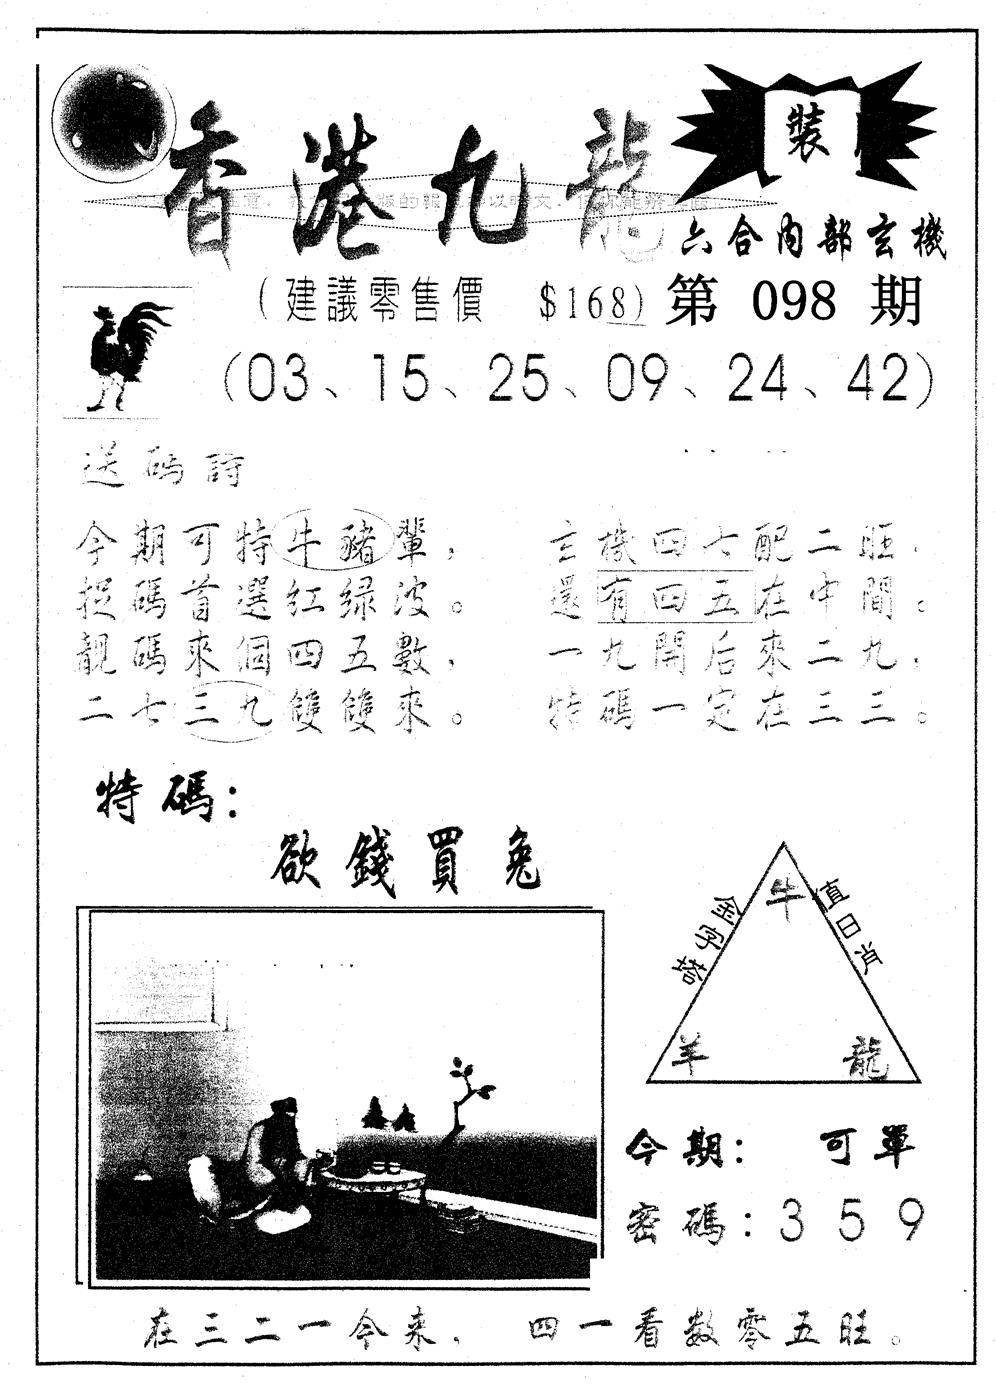 香港九龍
裝
六合內部玄機
(建議零售價 $168) 第 098 期
(03、15、25、09、24、42)
送碼詩
今期可特牛豬輩, 玄機四七配二旺,
捉碼首選红绿波。 還有四五在中間。
靓碼來個四五數, 一九開后來二九,
二七三九雙雙來。 特碼一定在三三。
特碼:
欲錢買兔
金字塔
值日肖
牛
羊 龍
今期: 可單
密碼: 3 5 9
在三二一今来, 四一看数零五旺。